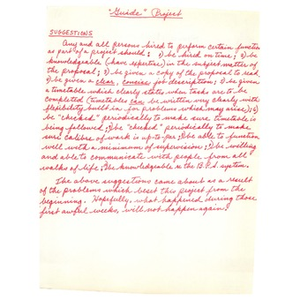 "Guide" Project
SUGGESTIONS
Any and all persons hired to perform certain functions
as part of a project should: 1) be hired on time; 2) be
knowledgeable (have expertise) in the subject matter of
the proposal; 3) be given a copy of the proposal to read
4) be given a clear, concise job description; 5) be given
a timetable which clearly states when tasks are to be
completed (timetables can be written very clearly with
flexibility built-in, for problems which may arise); 6)
be "checked" periodically to make sure timetable is
being followed; 7) be "checked" periodically to make
sure calibre of work is up to par; 8) be able to function
well with a minimum of supervision; 9) be willing
and able to communicate with people from all
walks of life; 10) be knowledgeable in the B.P.S. system.
The above suggestions came about as a result
of the problems which beset this project from the
beginning. Hopefully, what happened during those
first awful weeks, will not happen again!